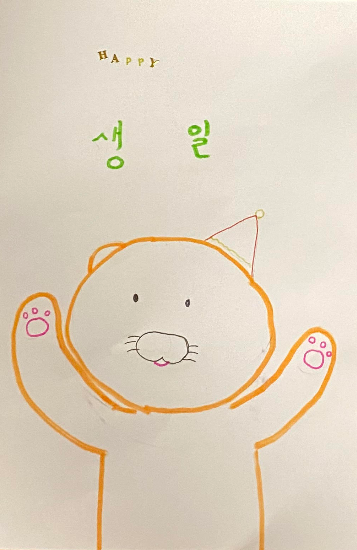 HAPPY
생 일